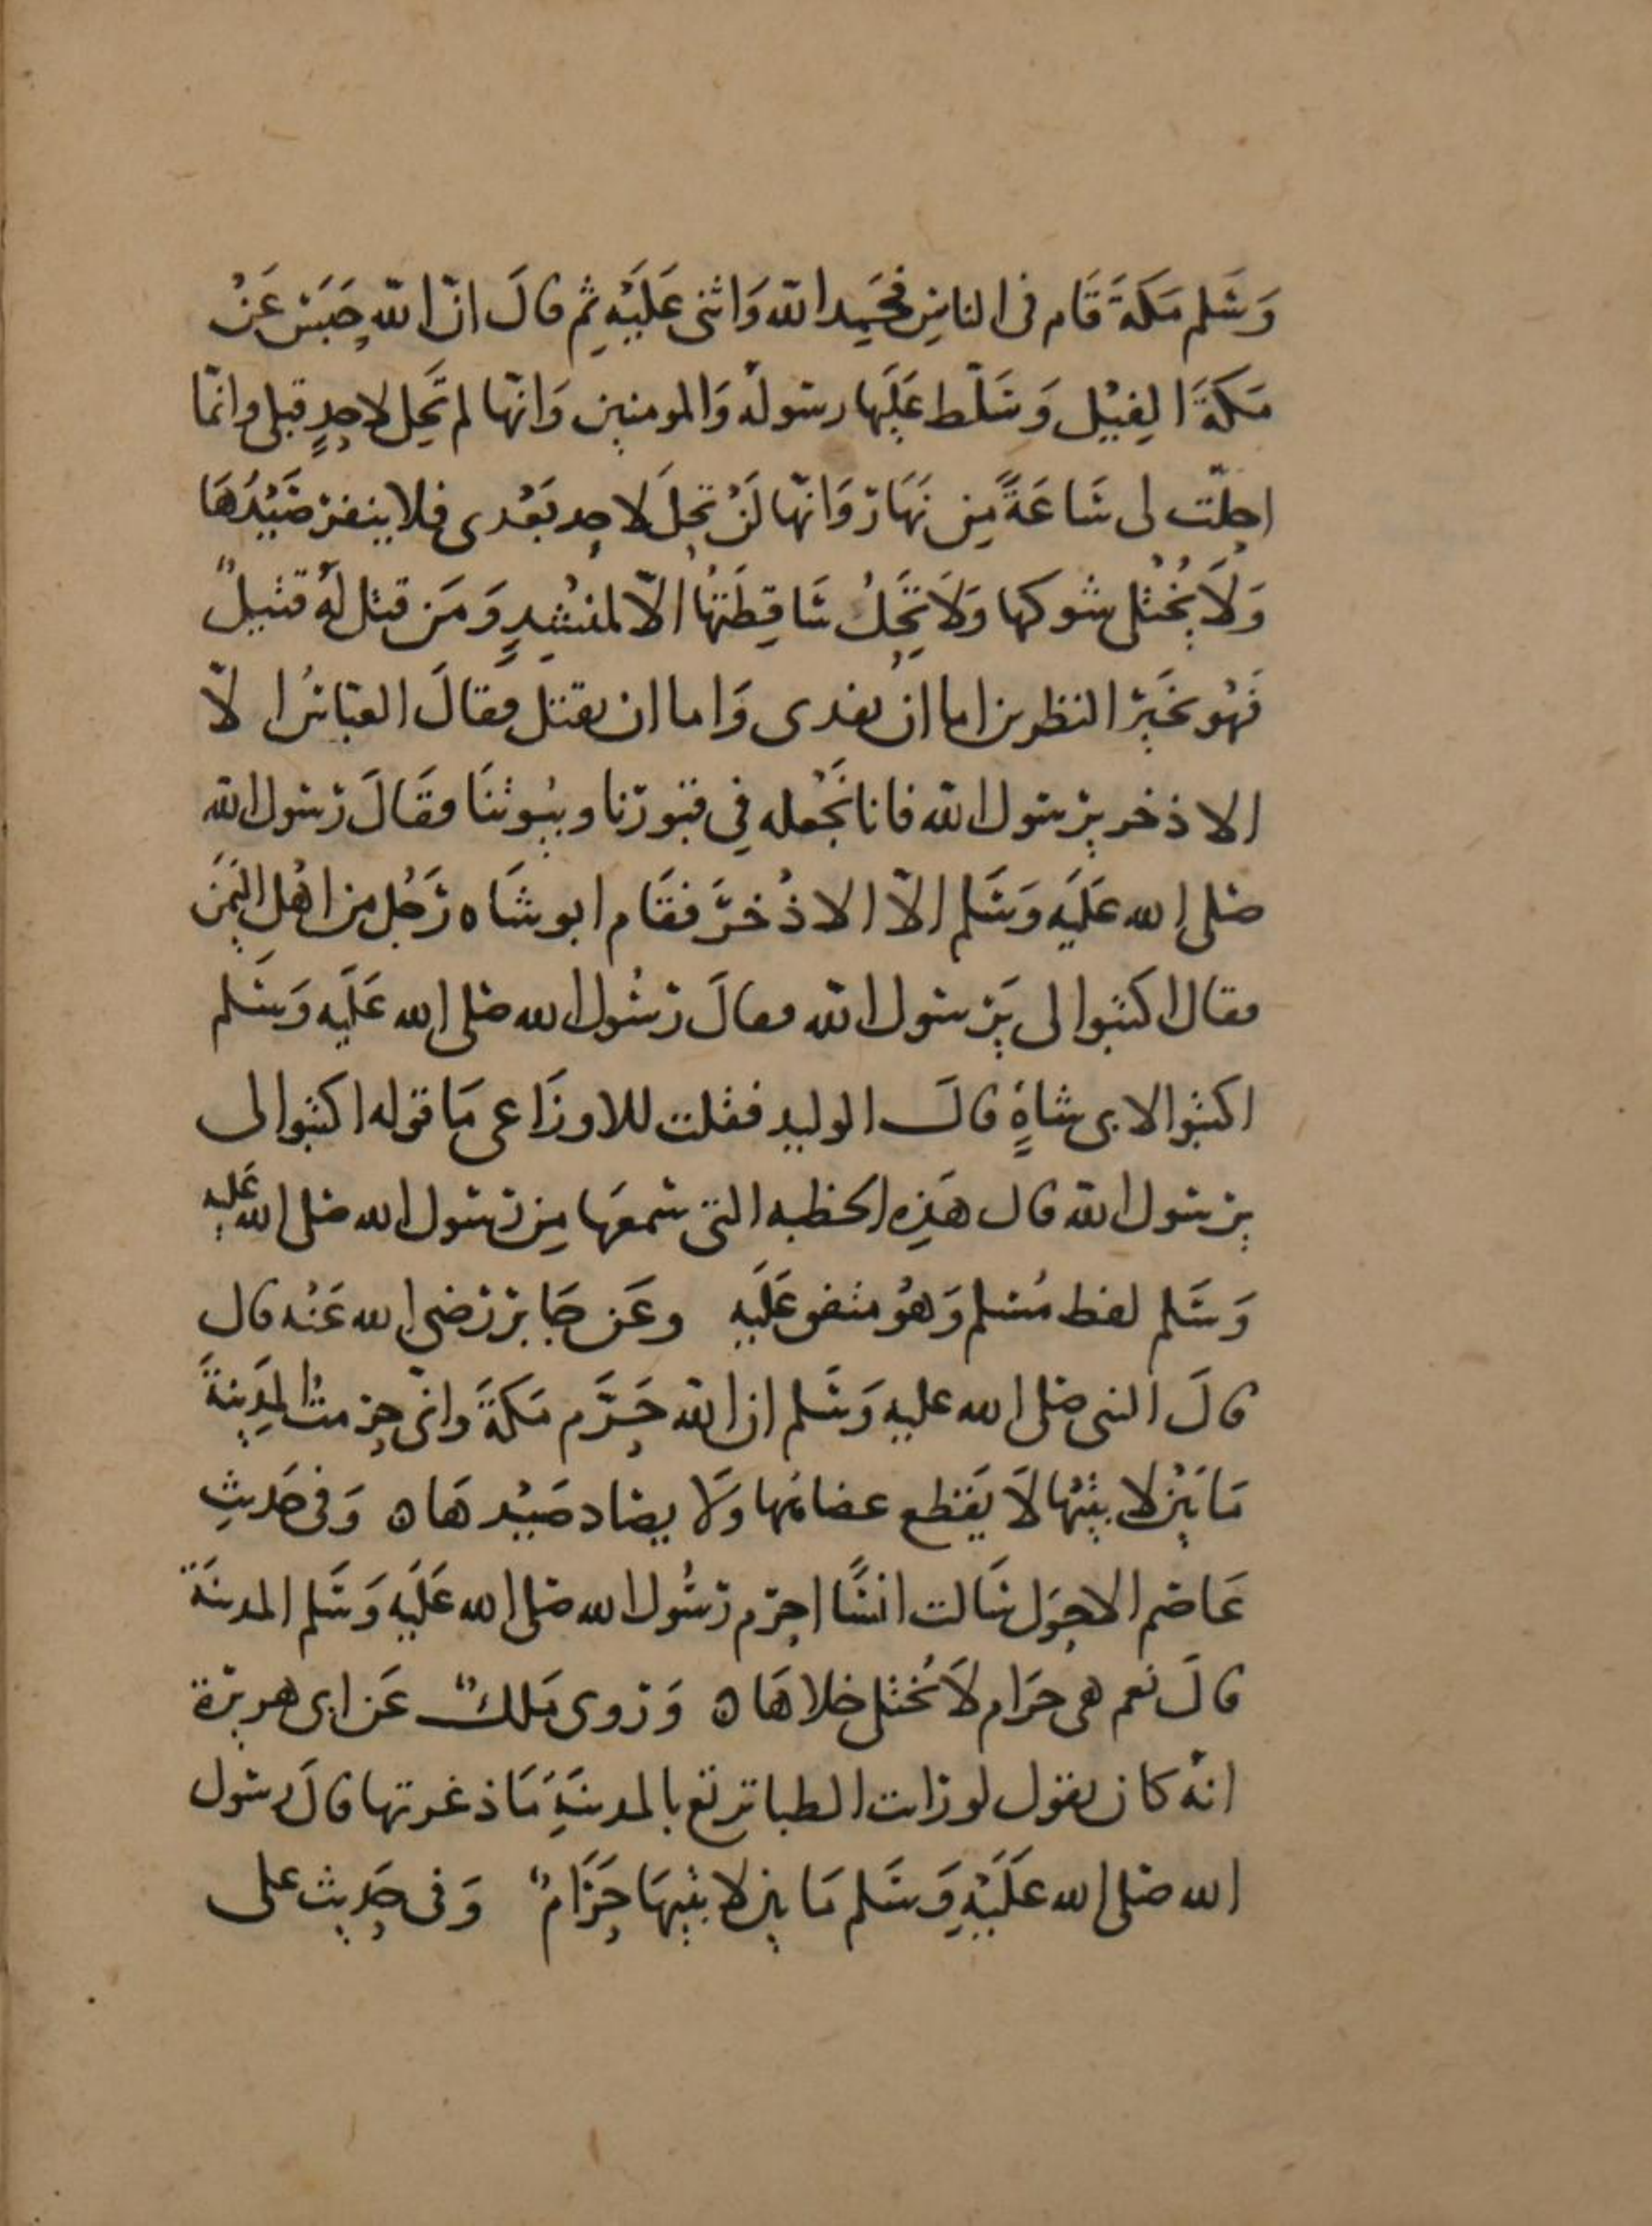 وَسَلم مَكة قَام فى الناسِ فحَمِد الله وَاثنى عَلَيْه ثم قالَ انّ الله حَبَسَ عَنْ
مَكةَ الفِيْل وَسَلّط عَلَيها رسوله وَالمومنين وَانّها لم تَحِل لاحدٍ قبلى وانمّا
احِلّت لى سَاعَةً مِن نهَار وَانّها لَنْ تحِلَ لاحد بَعْدى فلا ينفر صَيْدُهَا
وَلَا يُخْتلى شوكها وَلَا تَحِلُ سَاقِطَتهُا الّا لمنْشِدٍ وَمَن قتل لَهُ قتيلٌ
فَهُو بخَير النظرين اما ان يفدى وَاما ان يقتل فقالَ العبّاسُ الّا
الاذخر يرسول الله فانا نَجْعله فِي قبورنا وبيوتنَا فقَالَ رَسول الله
صلى الله عَلَيه وَسَلم الّا الاذْخرَ فقَام ابو شَاه رَجُل من اهْل اليَمَن
فقال اكتبوا لى يَرسول الله فقالَ رسُول الله صلى الله عَلَيه وَسَلم
اكتبوا لابى شاهٍ قالَ الوليد فقلت للاوزَاعى مَا قوله اكتبوا لى
يرسول الله قال هَذِه الخطبه التى سَمعَها مِن رَسول الله صلى الله عَليه
وَسَلم لفظ مُسلم وَهوُ متفق عَلَيه وعَن جَابر رَضى الله عَنْه قال
قالَ النبى صلى الله عليه وَسَلم ان الله حَرَّم مَكةَ وانّى حرمتُ المدِينةَ
مَا بَيْن لابتَيْها لَا يقَطع عضاهَها ولَا يصَاد صَيْدهَا ه وَفى حَديثِ
عَاصم الاحوَل سَالت انسًا احرم رَسُول الله صلى الله عَلَيه وَسَلم المدينَة
قالَ نعم هى حرَام لَا يُختلى خلاهَا ه وَروى مَلكٌ عَن ابى هريرة
انهُ كان يقول لو رَات الظبا ترتع بالمدينَةِ مَا ذعرتها قالَ رسَول
الله صلى الله عَلَيْهِ وَسَلم مَا بين لابتيهَا حَرَامٌ وَفى حَديث على